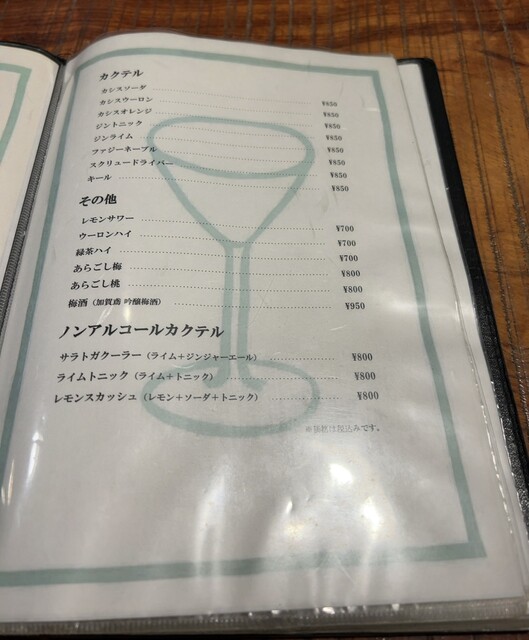 カクテル
カシスソーダ ¥850
カシスウーロン ¥850
カシスオレンジ ¥850
ジントニック ¥850
ジンライム ¥850
ファジーネーブル ¥850
スクリュードライバー ¥850
キール ¥850
その他
レモンサワー ¥700
ウーロンハイ ¥700
緑茶ハイ ¥700
あらごし梅 ¥800
あらごし桃 ¥800
梅酒（加賀鳶 吟醸梅酒） ¥950
ノンアルコールカクテル
サラトガクーラー（ライム＋ジンジャーエール） ¥800
ライムトニック（ライム＋トニック） ¥800
レモンスカッシュ（レモン＋ソーダ＋トニック） ¥800
※価格は税込みです。